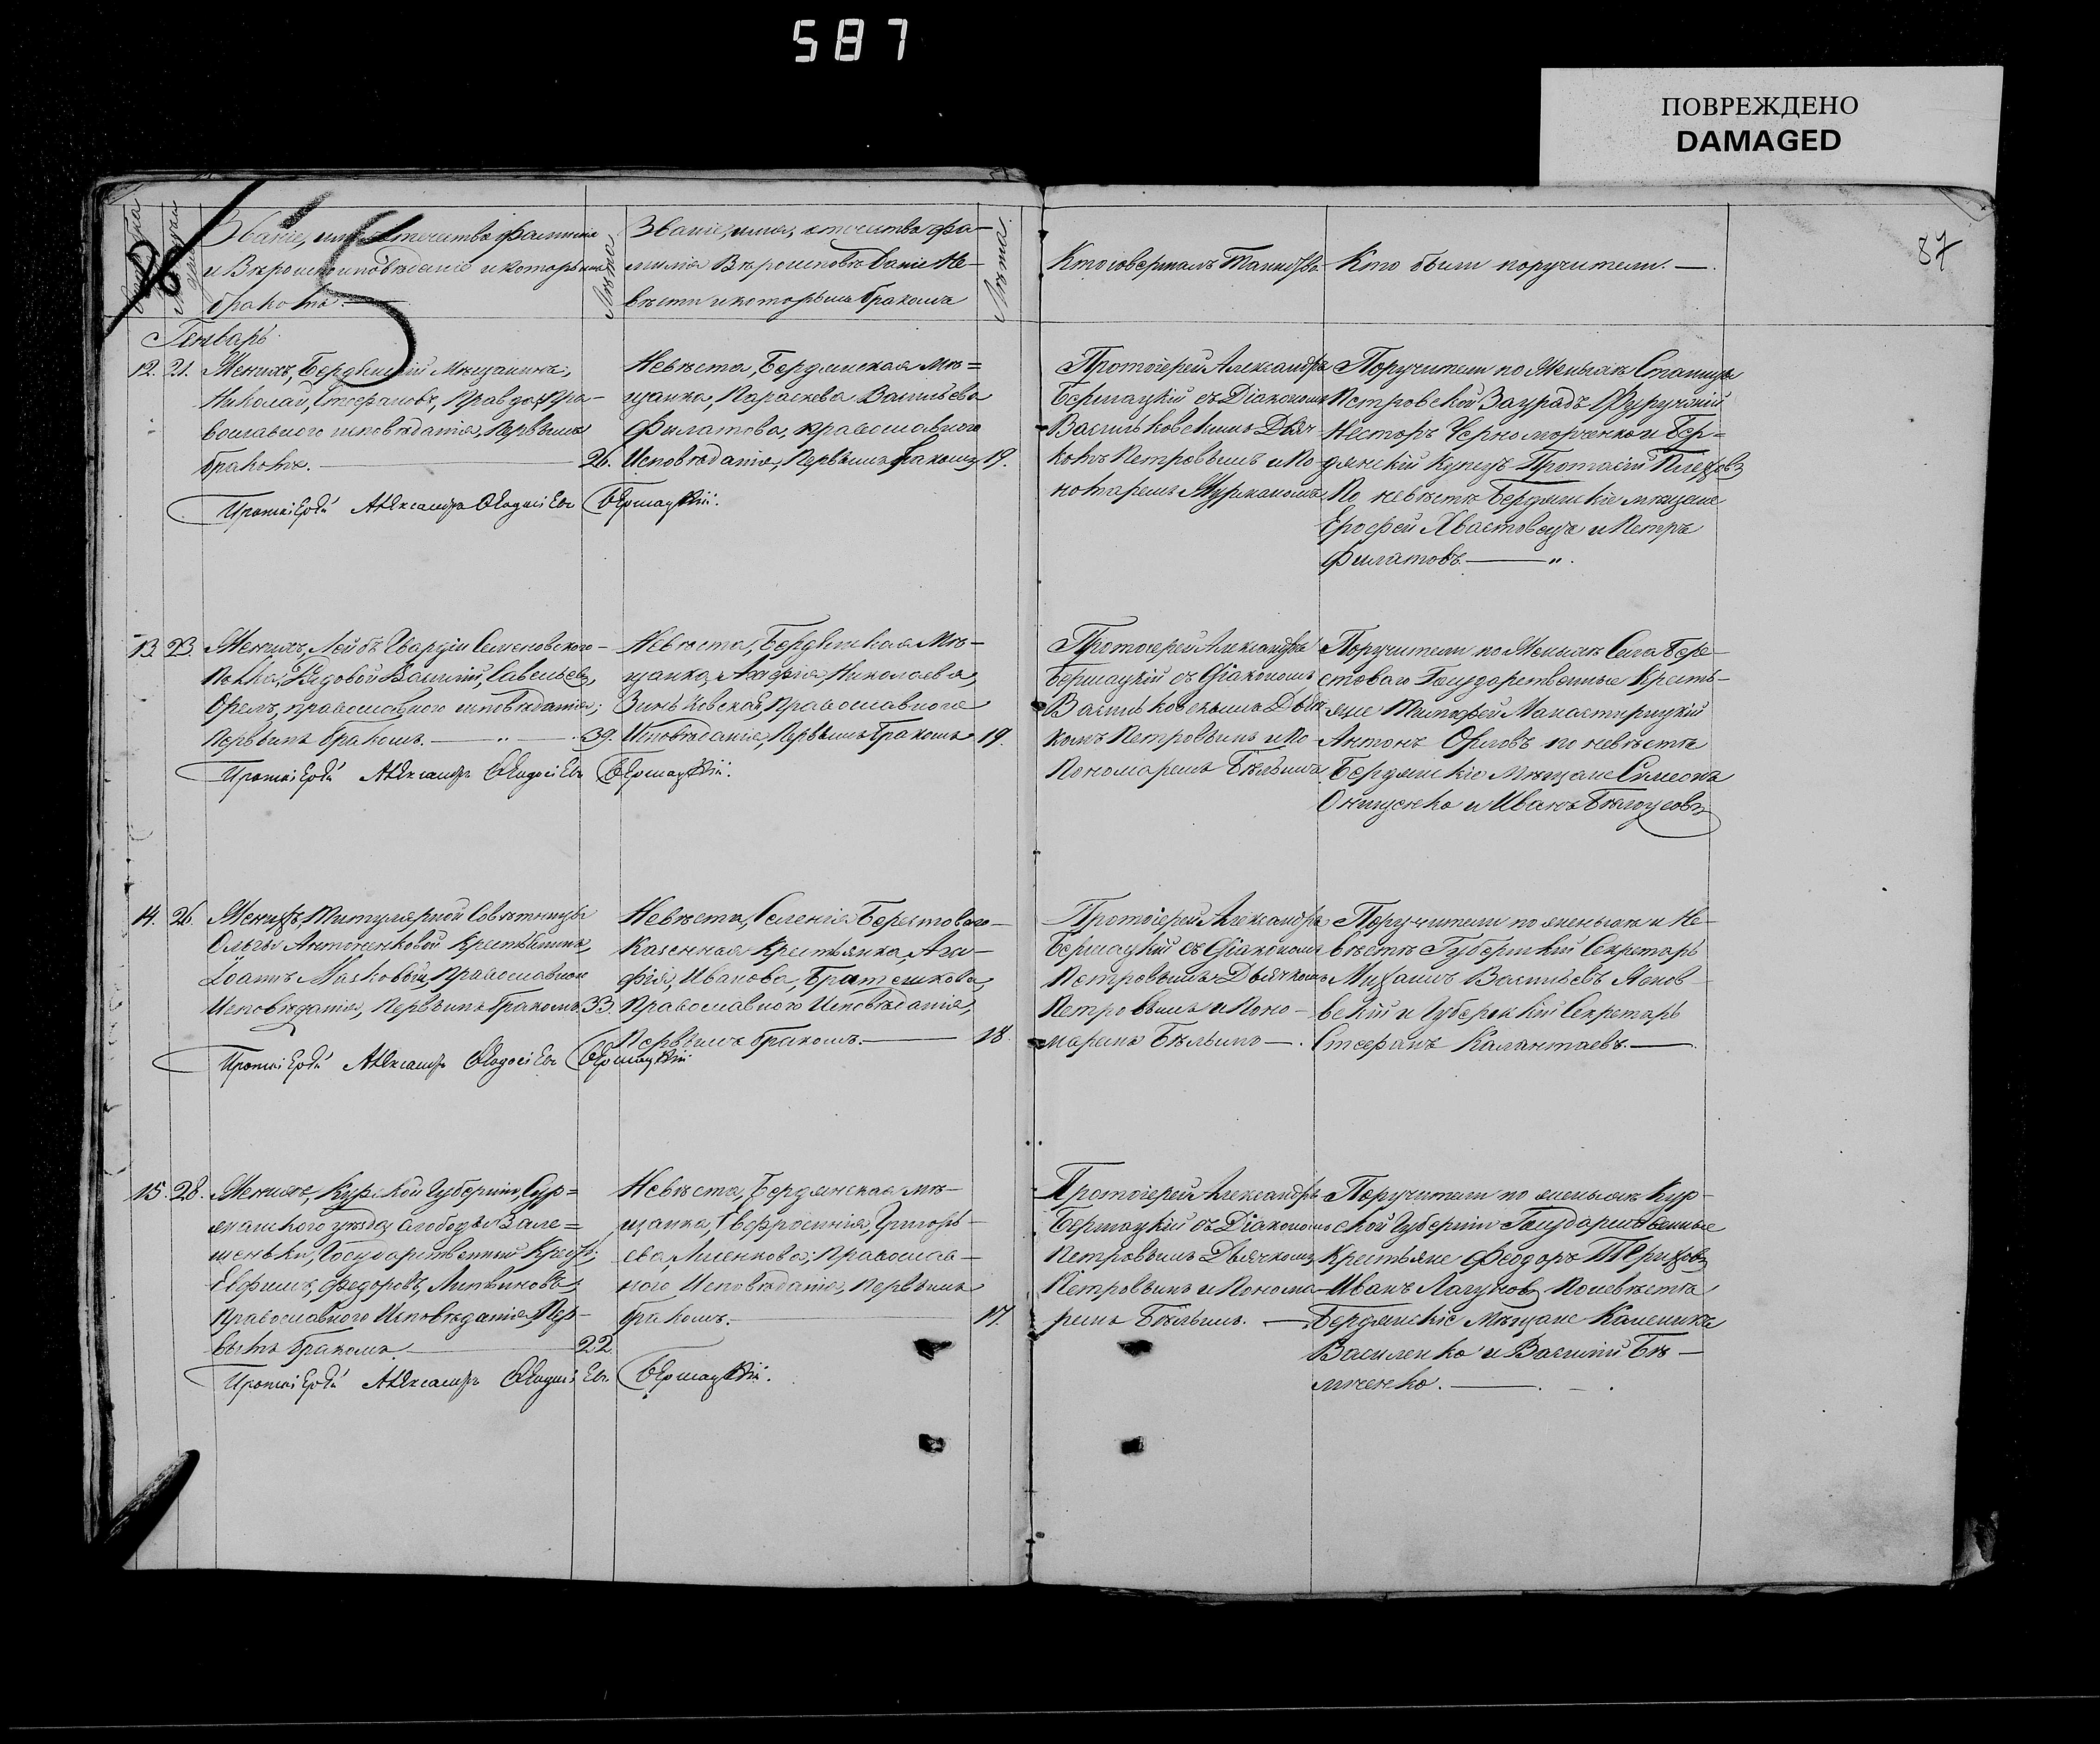 587
ПОВРЕЖДЕНО
DAMAGED
87
Званіе, имя, отчество, фамилія
и Вѣроисповѣданіе и которымъ
бракомъ.
Лѣта
Званіе, имя, отчество фа-
милія Вѣроисповѣданіе Не-
вѣсты и которымъ бракомъ
Лѣта
Кто совершалъ Таинство
Кто были поручители.
Генварь
12. 21. Женихъ, Бердянскій Мѣщанинъ,
Николай, Стефановъ, Правда, Пра-
вославнаго исповѣданія, Первымъ
бракомъ. 26.
Невѣста, Бердянская Мѣ=
щанка, Параскева Васильева
Филатова, православнаго
Исповѣданія, Первымъ бракомъ 19.
Протоіерей Александръ
Бершацкій съ Діакономъ
Васильковскимъ Дьяч-
комъ Петровымъ и По-
номаремъ
Поручители по Женихѣ Станицы
Петровской Заурядъ
Несторъ Черноморченко и Бер=
дянскій Купецъ Протасій
По невѣстѣ Бердянскіе мѣщане
Ерофей и Петръ
Филатовъ.
Протоіерей Александръ Бершацкій.
13. 23. Женихъ, Лейбъ Гвардіи Семеновскаго
Полка, Рядовой Василій, Савельевъ,
Орелъ, православнаго исповѣданія;
Первымъ бракомъ. 39.
Невѣста, Бердянская Мѣ-
щанка, Николаева,
Зиньковская, Православнаго
Исповѣданія, Первымъ бракомъ 19.
Протоіерей Александръ
Бершацкій съ Діакономъ
Васильковскимъ Дьяч
комъ Петровымъ и По-
Пономаремъ Бѣлымъ
Поручители по Женихѣ Села Бере-
стоваго Государственные Кресть-
яне Тимофей Манастырецкій
Антонъ Орловъ по невѣстѣ
Бердянскіе Мѣщане Симеонъ
Онищенко и Иванъ Бѣлоусовъ
Протоіерей Александръ Бершацкій.
14. 26. Женихъ, Титулярной Совѣтницы
Ольги Антоненковой Крестьянинъ,
Іоаннъ Православнаго
Исповѣданія, Первымъ бракомъ. 33.
Невѣста, Селенія Берестоваго
Казенная Крестьянка, Ага-
фія, Иванова, Братешкова,
Православнаго Исповѣданія,
Первымъ бракомъ. 18.
Протоіерей Александръ
Бершацкій съ Діакономъ
Петровымъ Дьячкомъ
Петровымъ и Поно-
маремъ Бѣлымъ.
Поручители по женихѣ и Не-
вѣстѣ Губернскій Секретарь
Михаилъ Васильевъ
и Губернскій Секретарь
Стефанъ Калантаевъ.
Протоіерей Александръ Бершацкій
15. 28. Женихъ, Курской Губерніи, Суд=
жанскаго уѣзда, слободы Заме=
Государственный Крест;
Евфимъ, Федоровъ, Литвиновъ,
Православнаго Исповѣданія, Пер-
вымъ бракомъ. 22.
Невѣста, Бердянская мѣ-
щанка, Евфросинія, Григорь-
ева, Православ-
наго Исповѣданія, Первымъ
бракомъ. 17.
Протоіерей Александръ
Бершацкій съ Діакономъ
Петровымъ Дьячкомъ
Петровымъ и Понома-
ремъ Бѣлымъ.
Поручители по женихѣ Кур-
ской Губерніи Государственные
Крестьяне Феодоръ Терихов
Иванъ Лагуновъ По невѣстѣ
Бердянскіе Мѣщане
Василенко и Василій Бѣ-
Протоіерей Александръ Бершацкій.